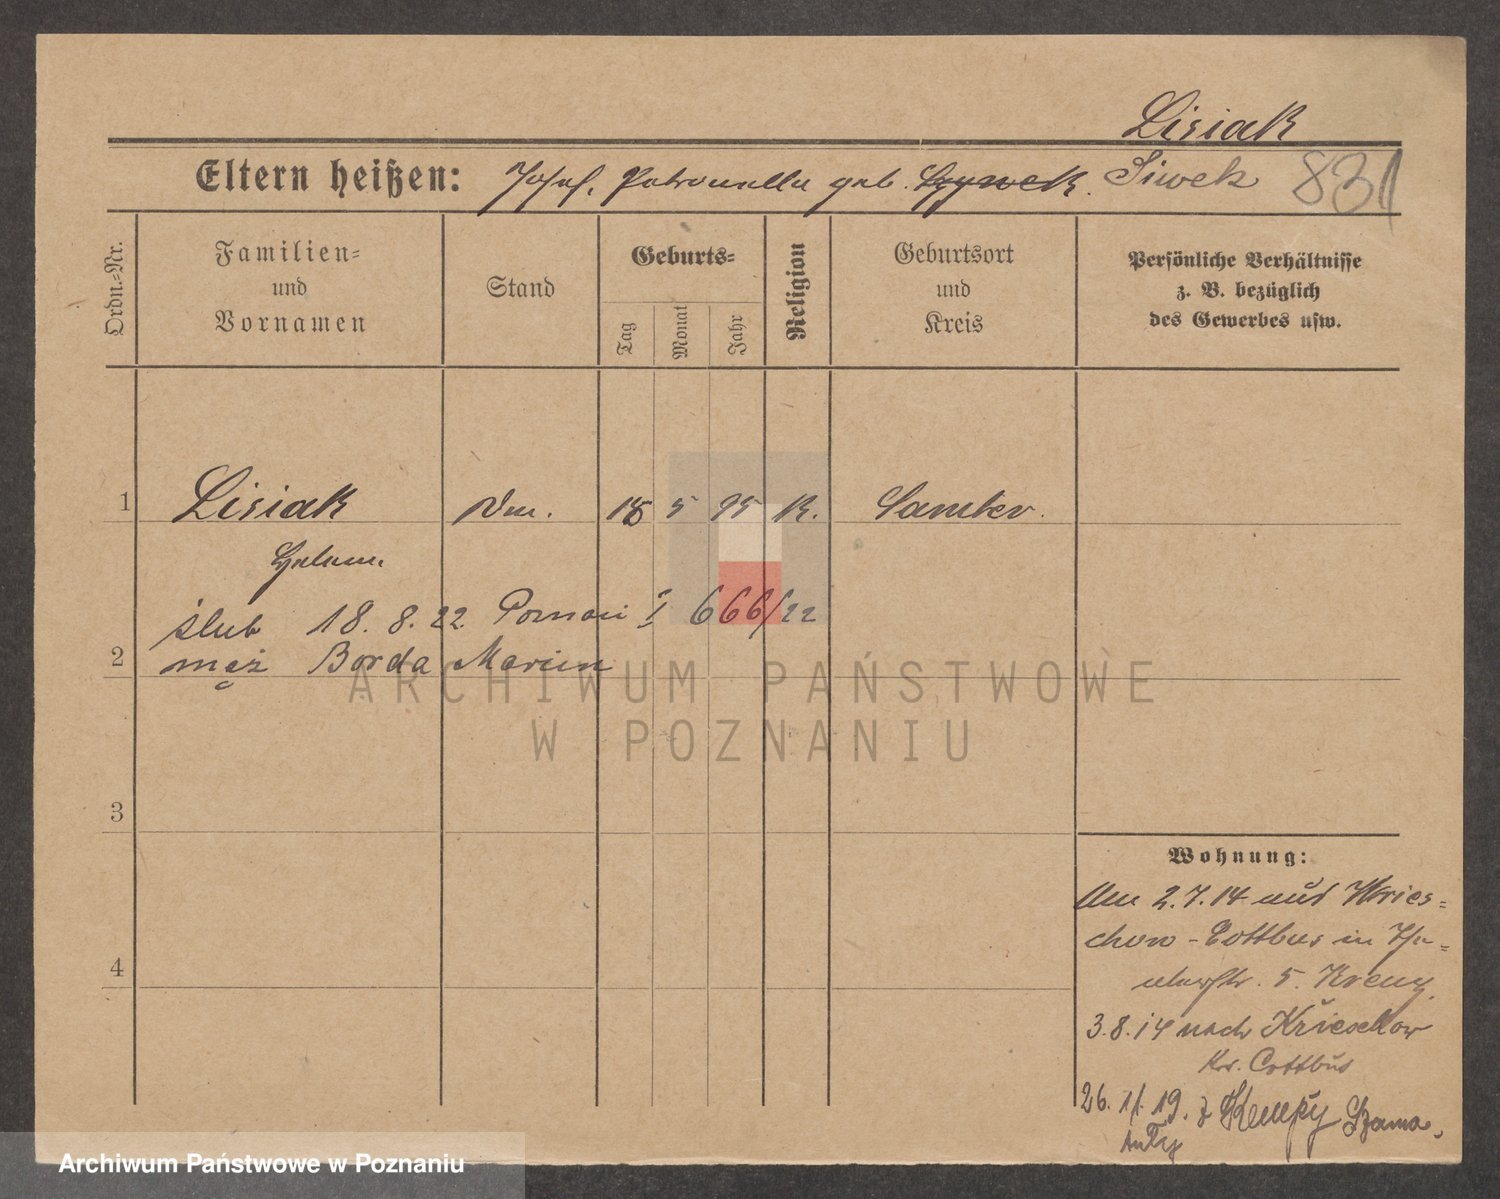 Lisiak
Eltern heißen: Josef, Petronella geb. Siwek 831
Ordn.-Nr.
Familien-
und
Vornamen
Stand
Geburts-
Tag
Monat
Jahr
Religion
Geburtsort
und
Kreis
Persönliche Verhältnisse
z. B. bezüglich
des Gewerbes usw.
1 Lisiak 5 95 K. Samter.
Helene
ślub 18. 8. 22 Poznań I 666/22
2 mąż Borda Marcin
3
4
Wohnung:
Am 2.7.14 aus Kries=
chow - Cottbus in
5. Kreuz.
3.8.14 nach Krieschow
Krs. Cottbus
26. 11. 19. z Kempy
ARCHIWUM PAŃSTWOWE
W POZNANIU
Archiwum Państwowe w Poznaniu